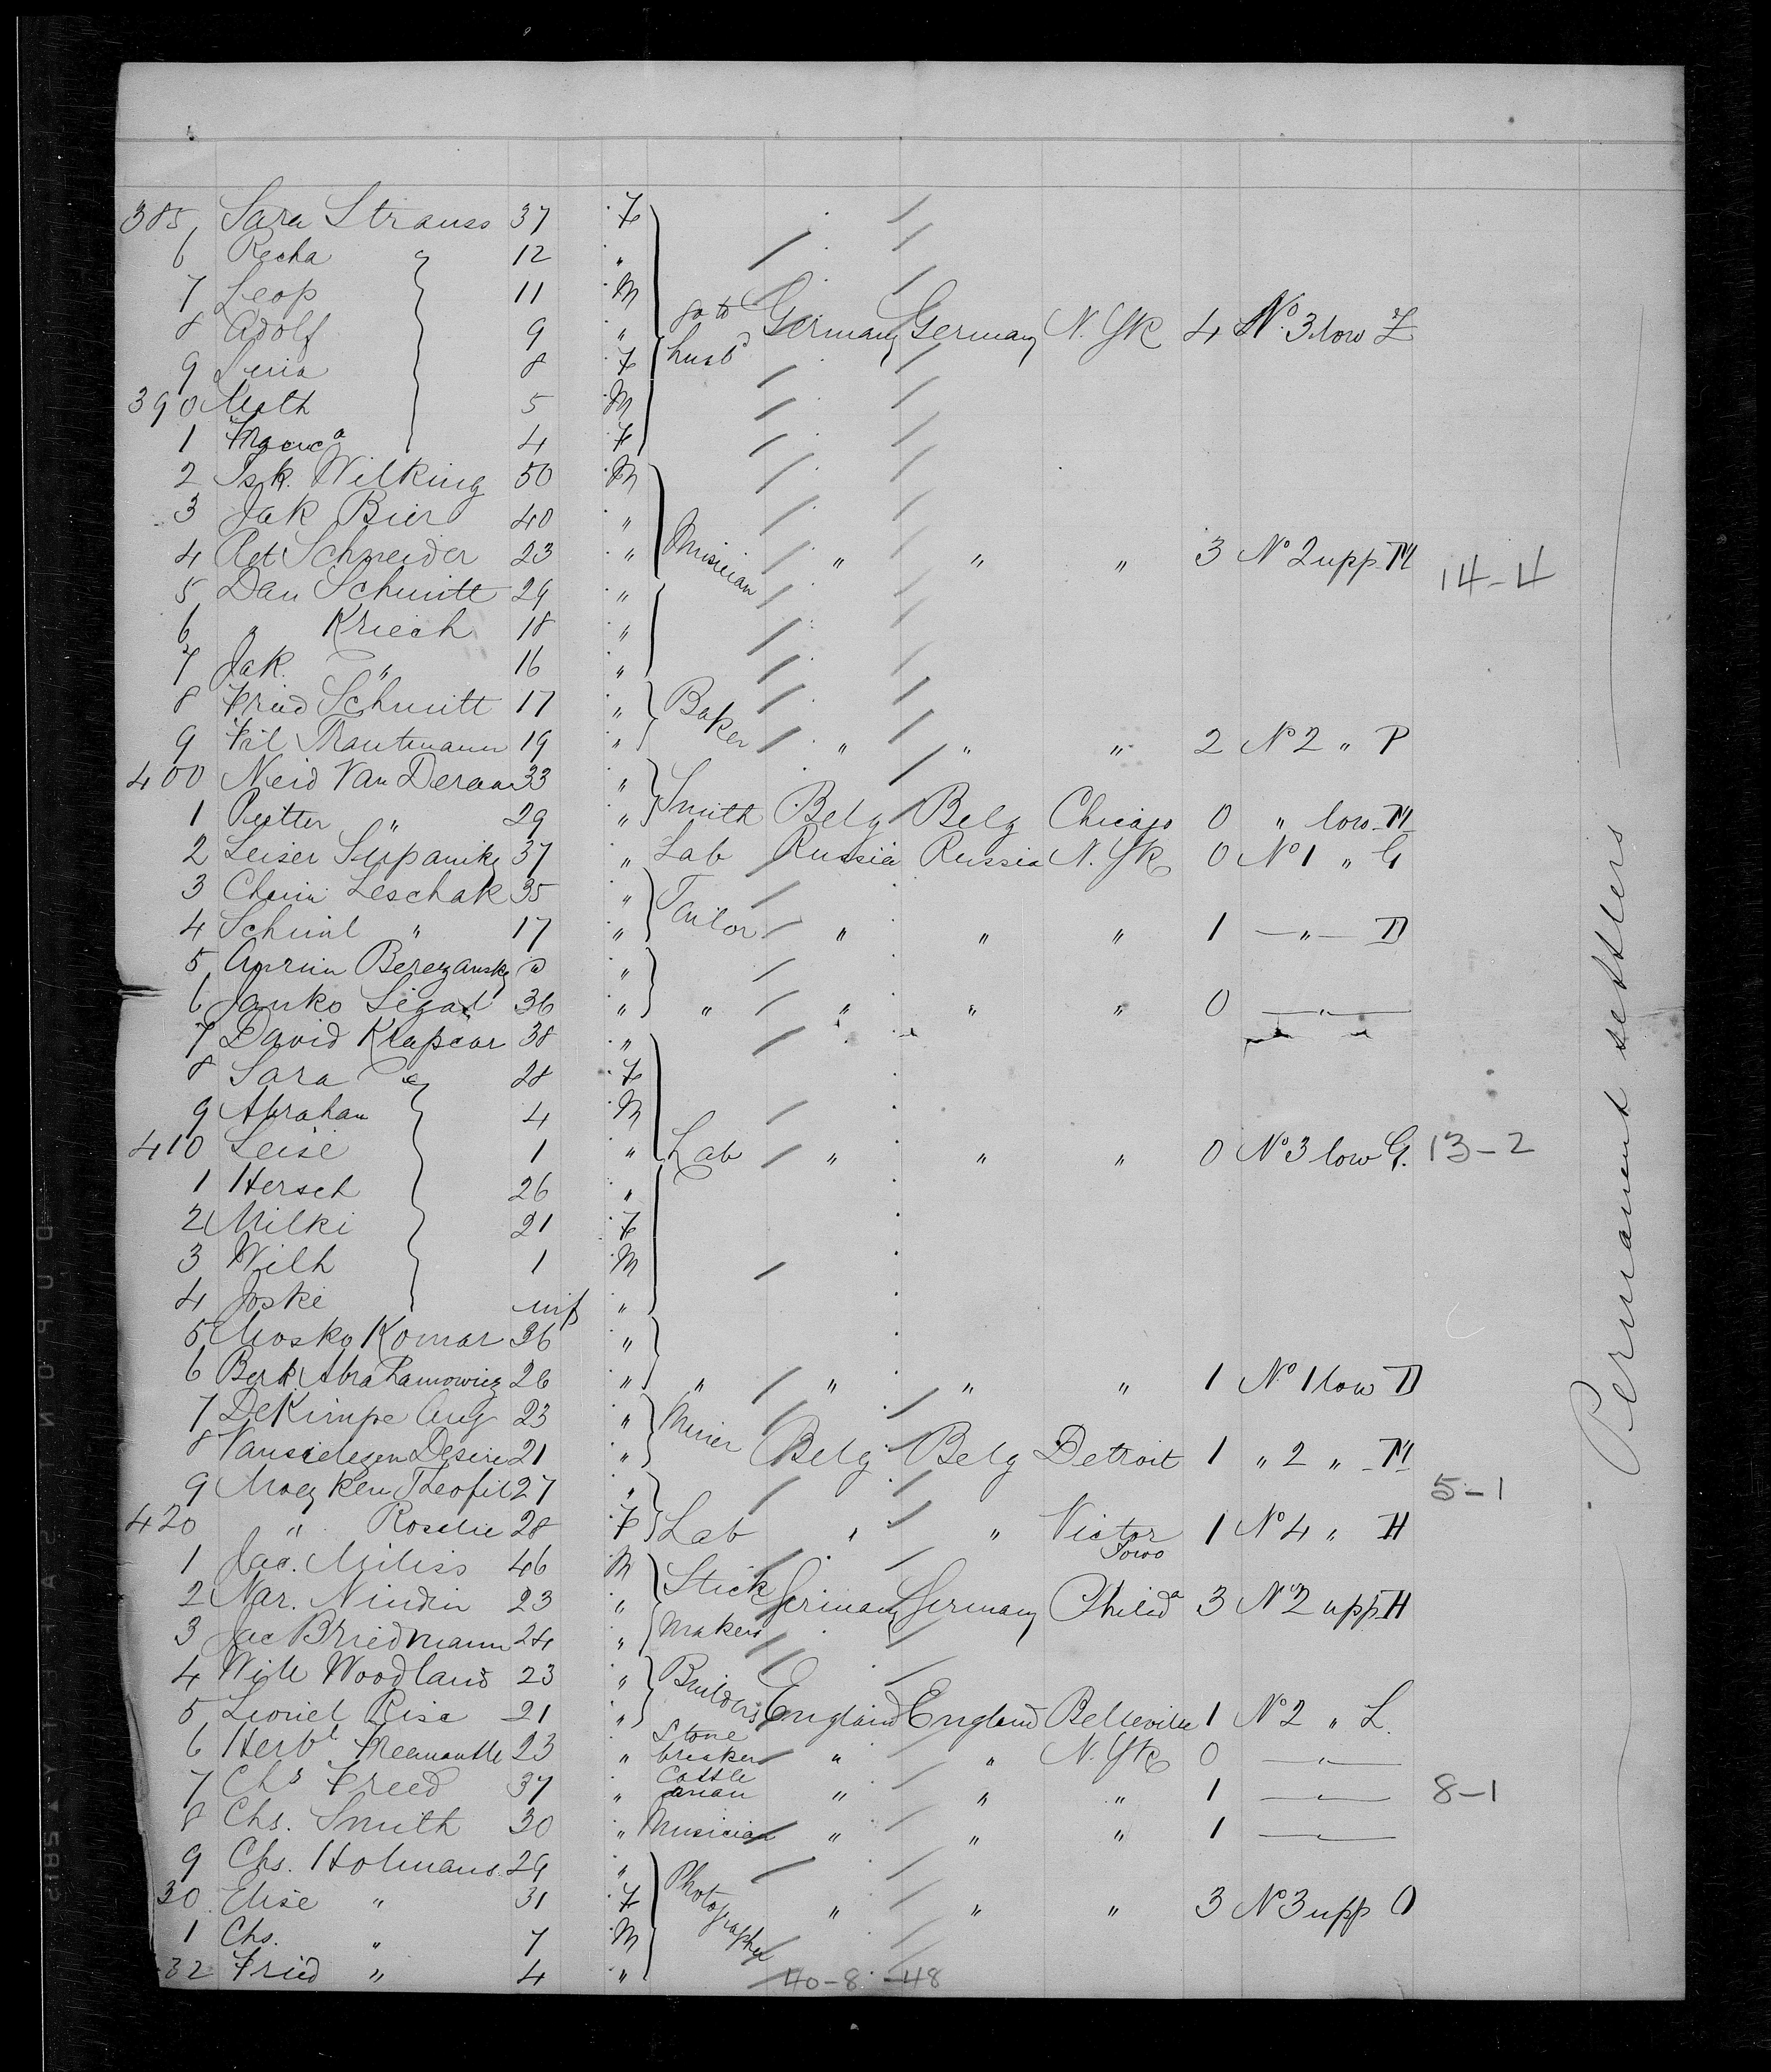 385 Sara Strauss 37 F
6 Recha " 12 "
7 Leop 11 M
8 Adolf 9 " go to husbd Germany Germany N. Yk 4 No. 3 low Z
9 Lina 8 F
390 Math 5 M
1 4 F
2 Isk. Wilking 50 M
3 Jak Bier 40 "
4 Pet Schneider 23 " Musician " " " 3 No 2 upp M 14-4
5 Dan Schmitt 29 "
6 " Kriech 18 "
7 Jak. " 16 "
8 Fried Schmitt 17 " Baker
9 Fil Trautmann 19 " " " " 2 No 2 " P
400 Neid Van Deraar 33 "
1 Petter " 29 " Smith Belg Belg Chicago 0 " low M
2 Leiser 37 " Lab Russia Russia N. Yk 0 No 1 " G
3 Chaim Leschak 35 " Tailor
4 Schiml " 17 " " " " 1 — " — D
5 Berezansky "
6 Janko Segal 36 " " " " " 0 — " —
7 David Klapcar 38 "
8 Sara " 28 F
9 Abraham 4 M
410 Leise 1 " Lab " " " 0 No 3 low G. 13-2
1 Hersch 26 "
2 Milki 21 F
3 Wilh 1 M
4 Joske inf "
5 Mosko Komar 36 "
6 Berk. Abrahamowicz 26 " " " " " 1 No 1 low D
7 DeKimpe Aug 23 " Miner
8 Desire 21 " Belg Belg Detroit 1 " 2 " M
9 Theofil 27 " 5-1
420 " Rosalie 28 F Lab " " Victor Iowa 1 No 4 " H
1 Jac. Miliss 46 M
2 Nar. Nindin 23 " Stick Makers Germany Germany Philda 3 No 2 upp H
3 Jac Briedmann 24 "
4 Will Woodland 23 " Builders
5 Lionel Rise 21 " England England Belleville 1 No 2 " L.
6 Herbt Freemantle 23 " Stone breaker " " N. Yk 0 — " —
7 Chs Freed 37 " Cattle man " " " 1 — " — 8-1
8 Chs. Smith 30 " Musician " " " 1 — " —
9 Chs. Holmans 29 "
30 Elise " 31 F Photographer " " " 3 No 3 upp O
1 Chs. " 7 M
32 Fried " 4 "
40-8-48
Permanent settlers